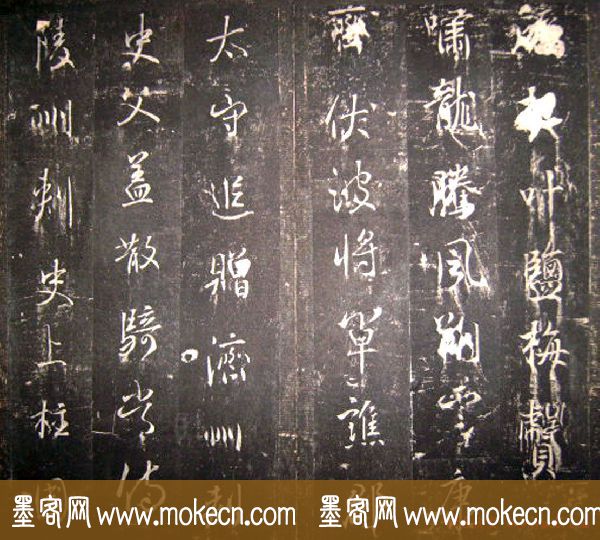 契叶鹽梅
嘯龍騰風翔雲
齊伏波將軍譙郡
太守追贈濟州刺
史父盖散騎常侍
陵州刺史上柱國
墨客网 www.mokecn.com 墨客网 www.mokecn.com